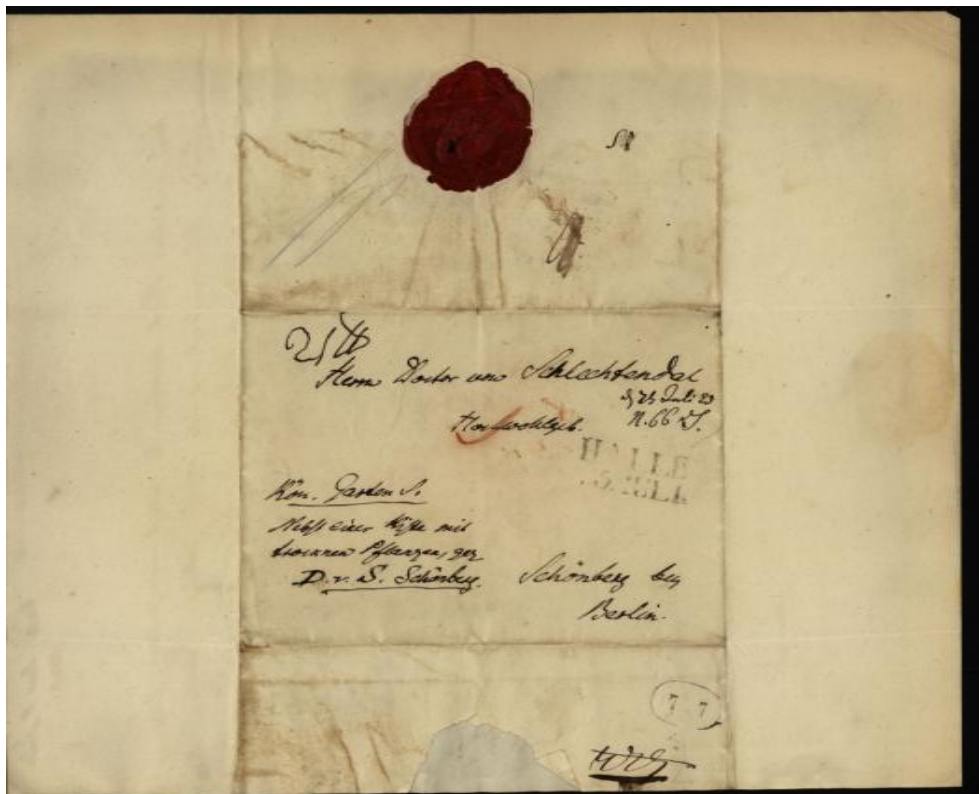 Herrn Doctor von Schlechtendal
Juli 23
N. 66
Hochwohlgeb.
HALLE
Kön. Garten S.
Nebst einer Kiste mit
trocknen Pflanzen, gez.
D. v. S. Schönberg.
Schönberg bey
Berlin.
7 7